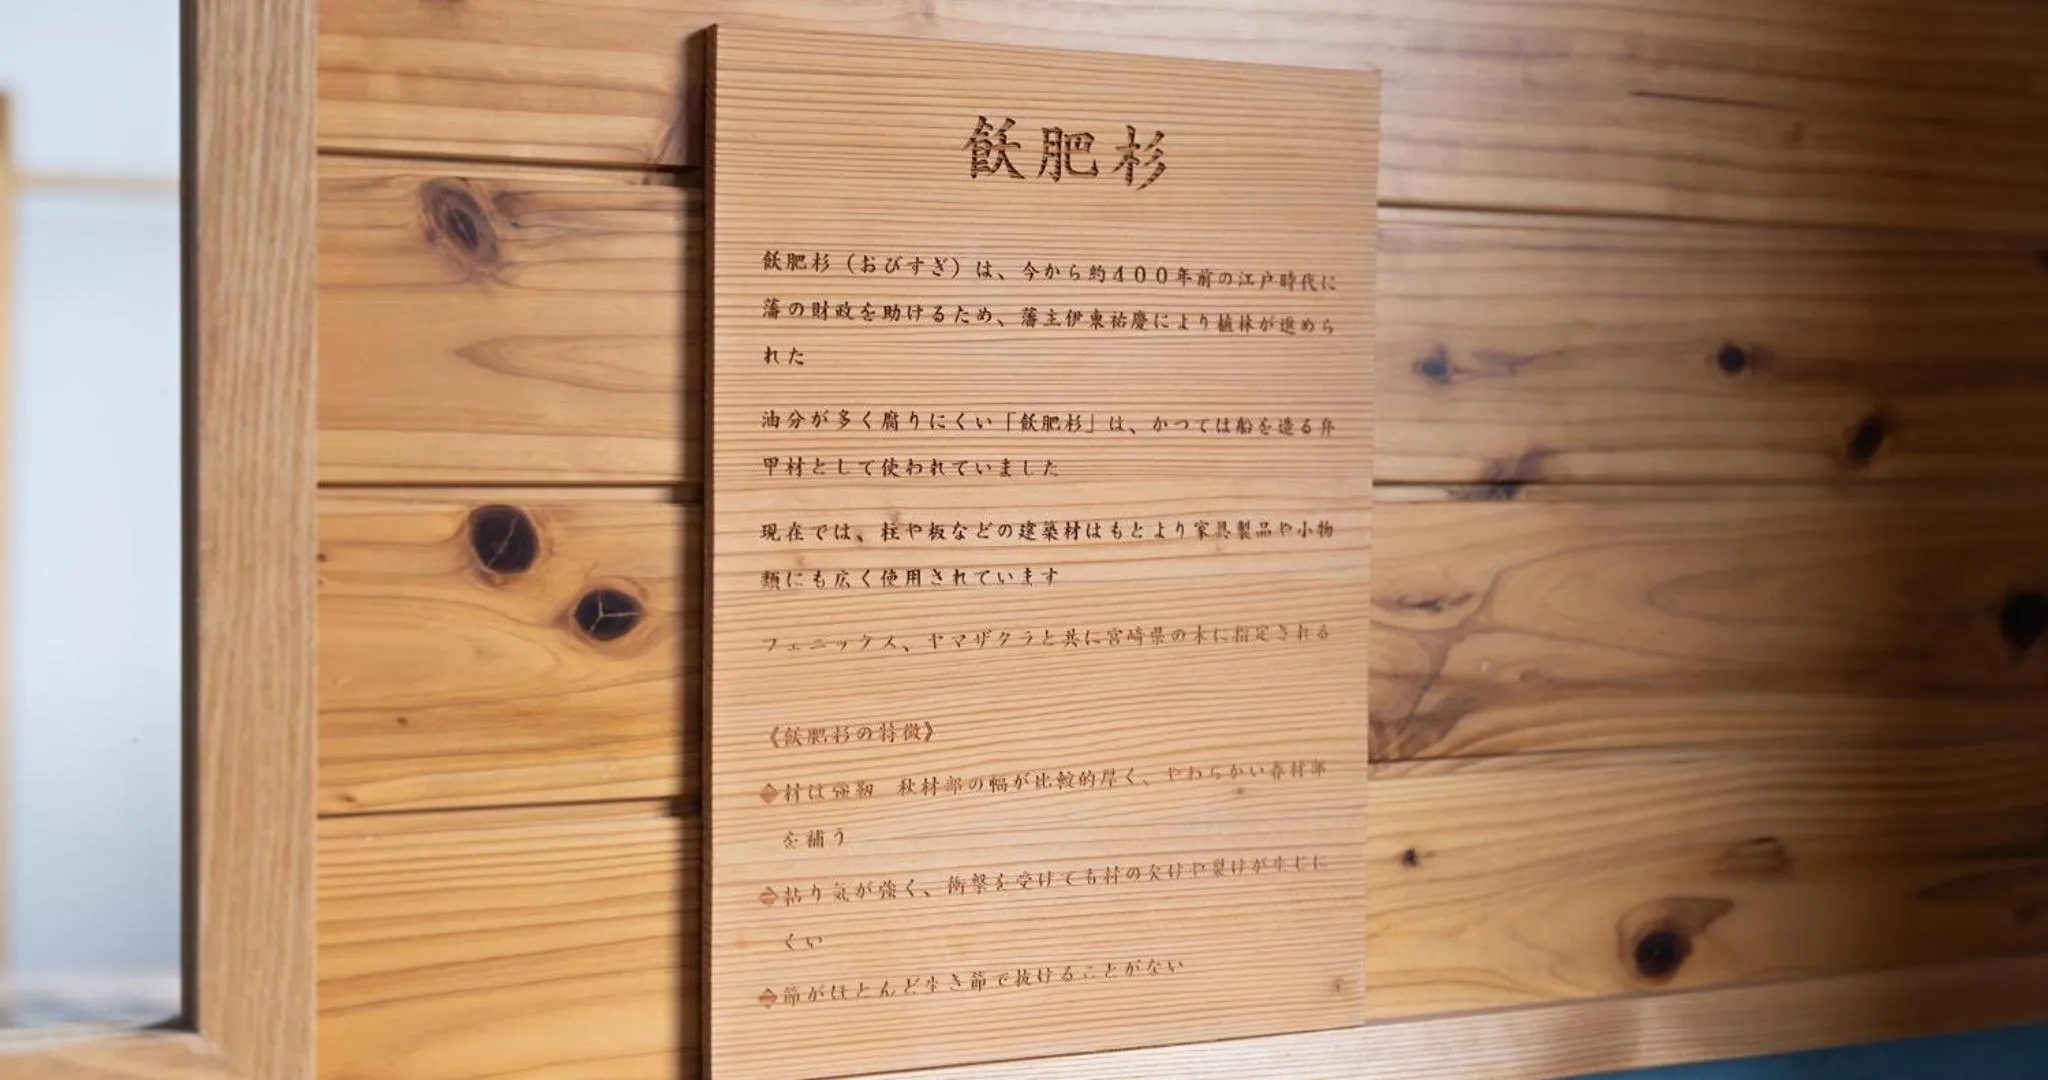 飫肥杉
飫肥杉（おびすぎ）は、今から約４００年前の江戸時代に
藩の財政を助けるため、藩主伊東祐慶により植林が進めら
れた
油分が多く腐りにくい「飫肥杉」は、かつては船を造る弁
甲材として使われていました
現在では、柱や板などの建築材はもとより家具製品や小物
類にも広く使用されています
フェニックス、ヤマザクラと共に宮崎県の木に指定される
《飫肥杉の特徴》
◆材は強靭　秋材部の幅が比較的厚く、やわらかい春材部
を補う
◆粘り気が強く、衝撃を受けても材の欠けや裂けが生じに
くい
◆節がほとんど生き節で抜けることがない